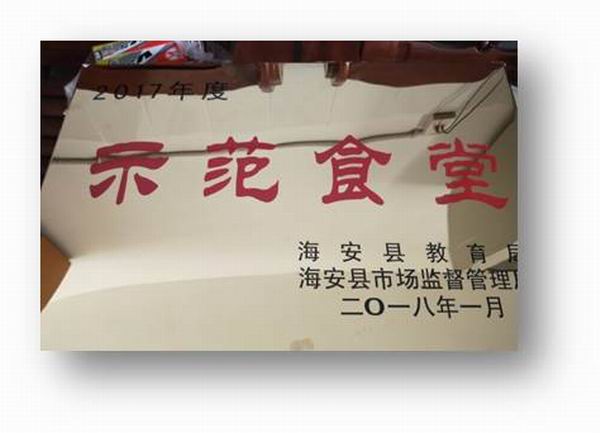 2017年度
示范食堂
海安县教育局
海安县市场监督管理局
二〇一八年一月